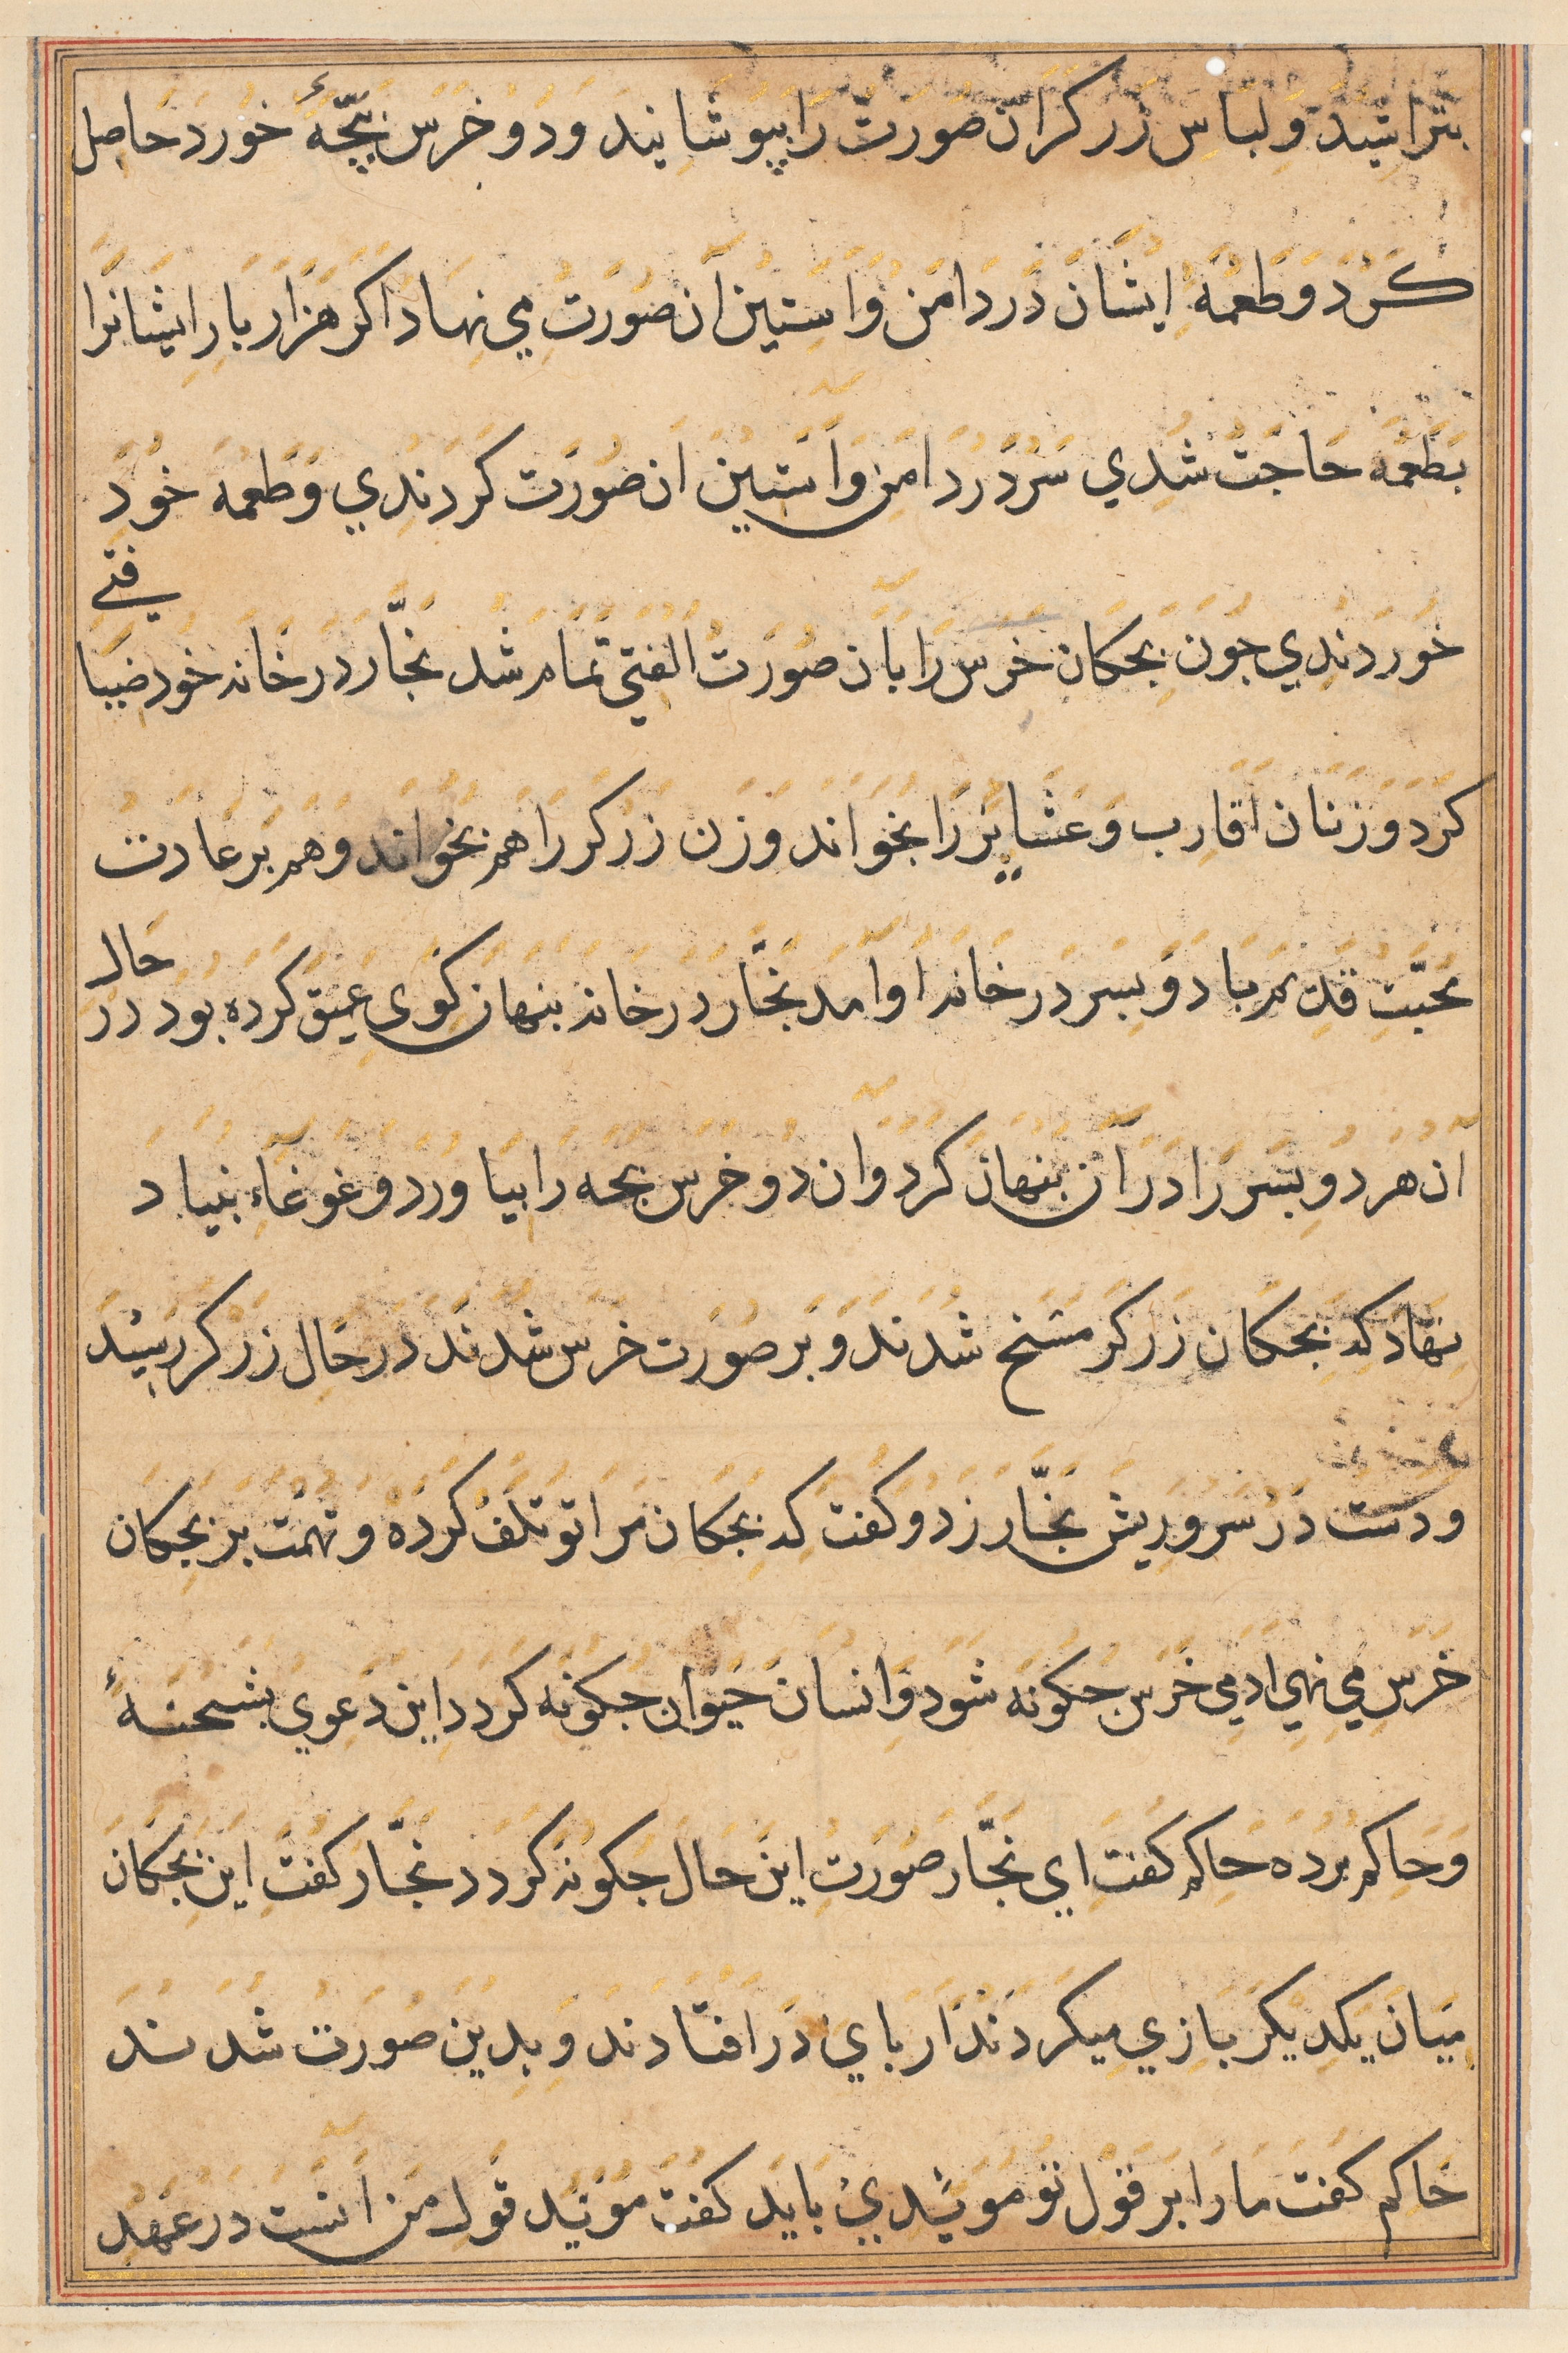 بتراشید و لباس زرکر ان صورت را بپوشانید و دو خرس بچّهٔ خورد حاصل
کرد و طعمهٔ ایشان در دامن و استین آن صورت می نهاد اکر هزار بار ایشانرا
بطعمه حاجت شدی سر در دامن و آستین ان صورت کردندی و طعمه خود
خوردندی جون بچکان خرس را بان صورت الفتی تمام شد نجّار در خانه خود ضیافتی
کرد و زنان اقارب و عشایر را بخواند و زن زرکر را هم بخواند و هم بر عادت
محبّت قدیم با دو پسر در خانه او آمد نجّار در خانه پنهان کوی عمیق کرده بود در حال
ان هر دو پسر را در آن پنهان کرد و ان دو خرس بچه را بیاورد و غوغاء بنیاد
نهاد که بچکان زرکر مسخ شدند و بر صورت خرس شدند در حال زرکر رسید
و دست در سر و ریش نجّار زد و کفت که بچکان مرا تو تلف کرده و تهمت بر بچکان
خرس می نهی ادمی خرس جکونه شود و انسان حیوان جکونه کردد این دعوی بشحنهٔ
و حاکم برده حاکم کفت ای نجّار صورت این حال جکونه کردد نجّار کفت این بچکان
میان یکدیکر بازی میکردند از بای در افتادند و بدین صورت شدند
حاکم کفت ما را بر قول تو مویّدی باید کفت مویّد قول من انست در عهد